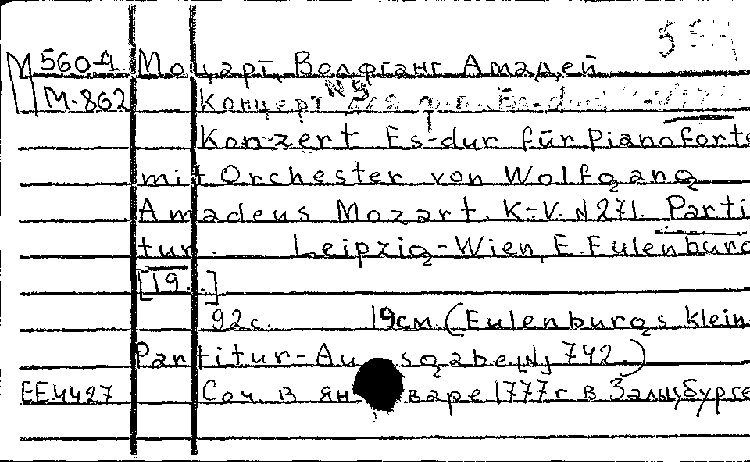 М 560-4 Моцарт, Волфганг Амадей
М-862 Концерт №9
Konzert Es-dur für Pianoforte
mit Orchester von Wolfgang
Amadeus Mozart. K.-V. N 271. Parti
tur. Leipzig-Wien, E. Eulenburg
[19..]
92с. 19см. (Eulenburgs klein
Partitur-Ausgabe N 742.)
EE4427 Соч. в январе 1777г в Залцбурге